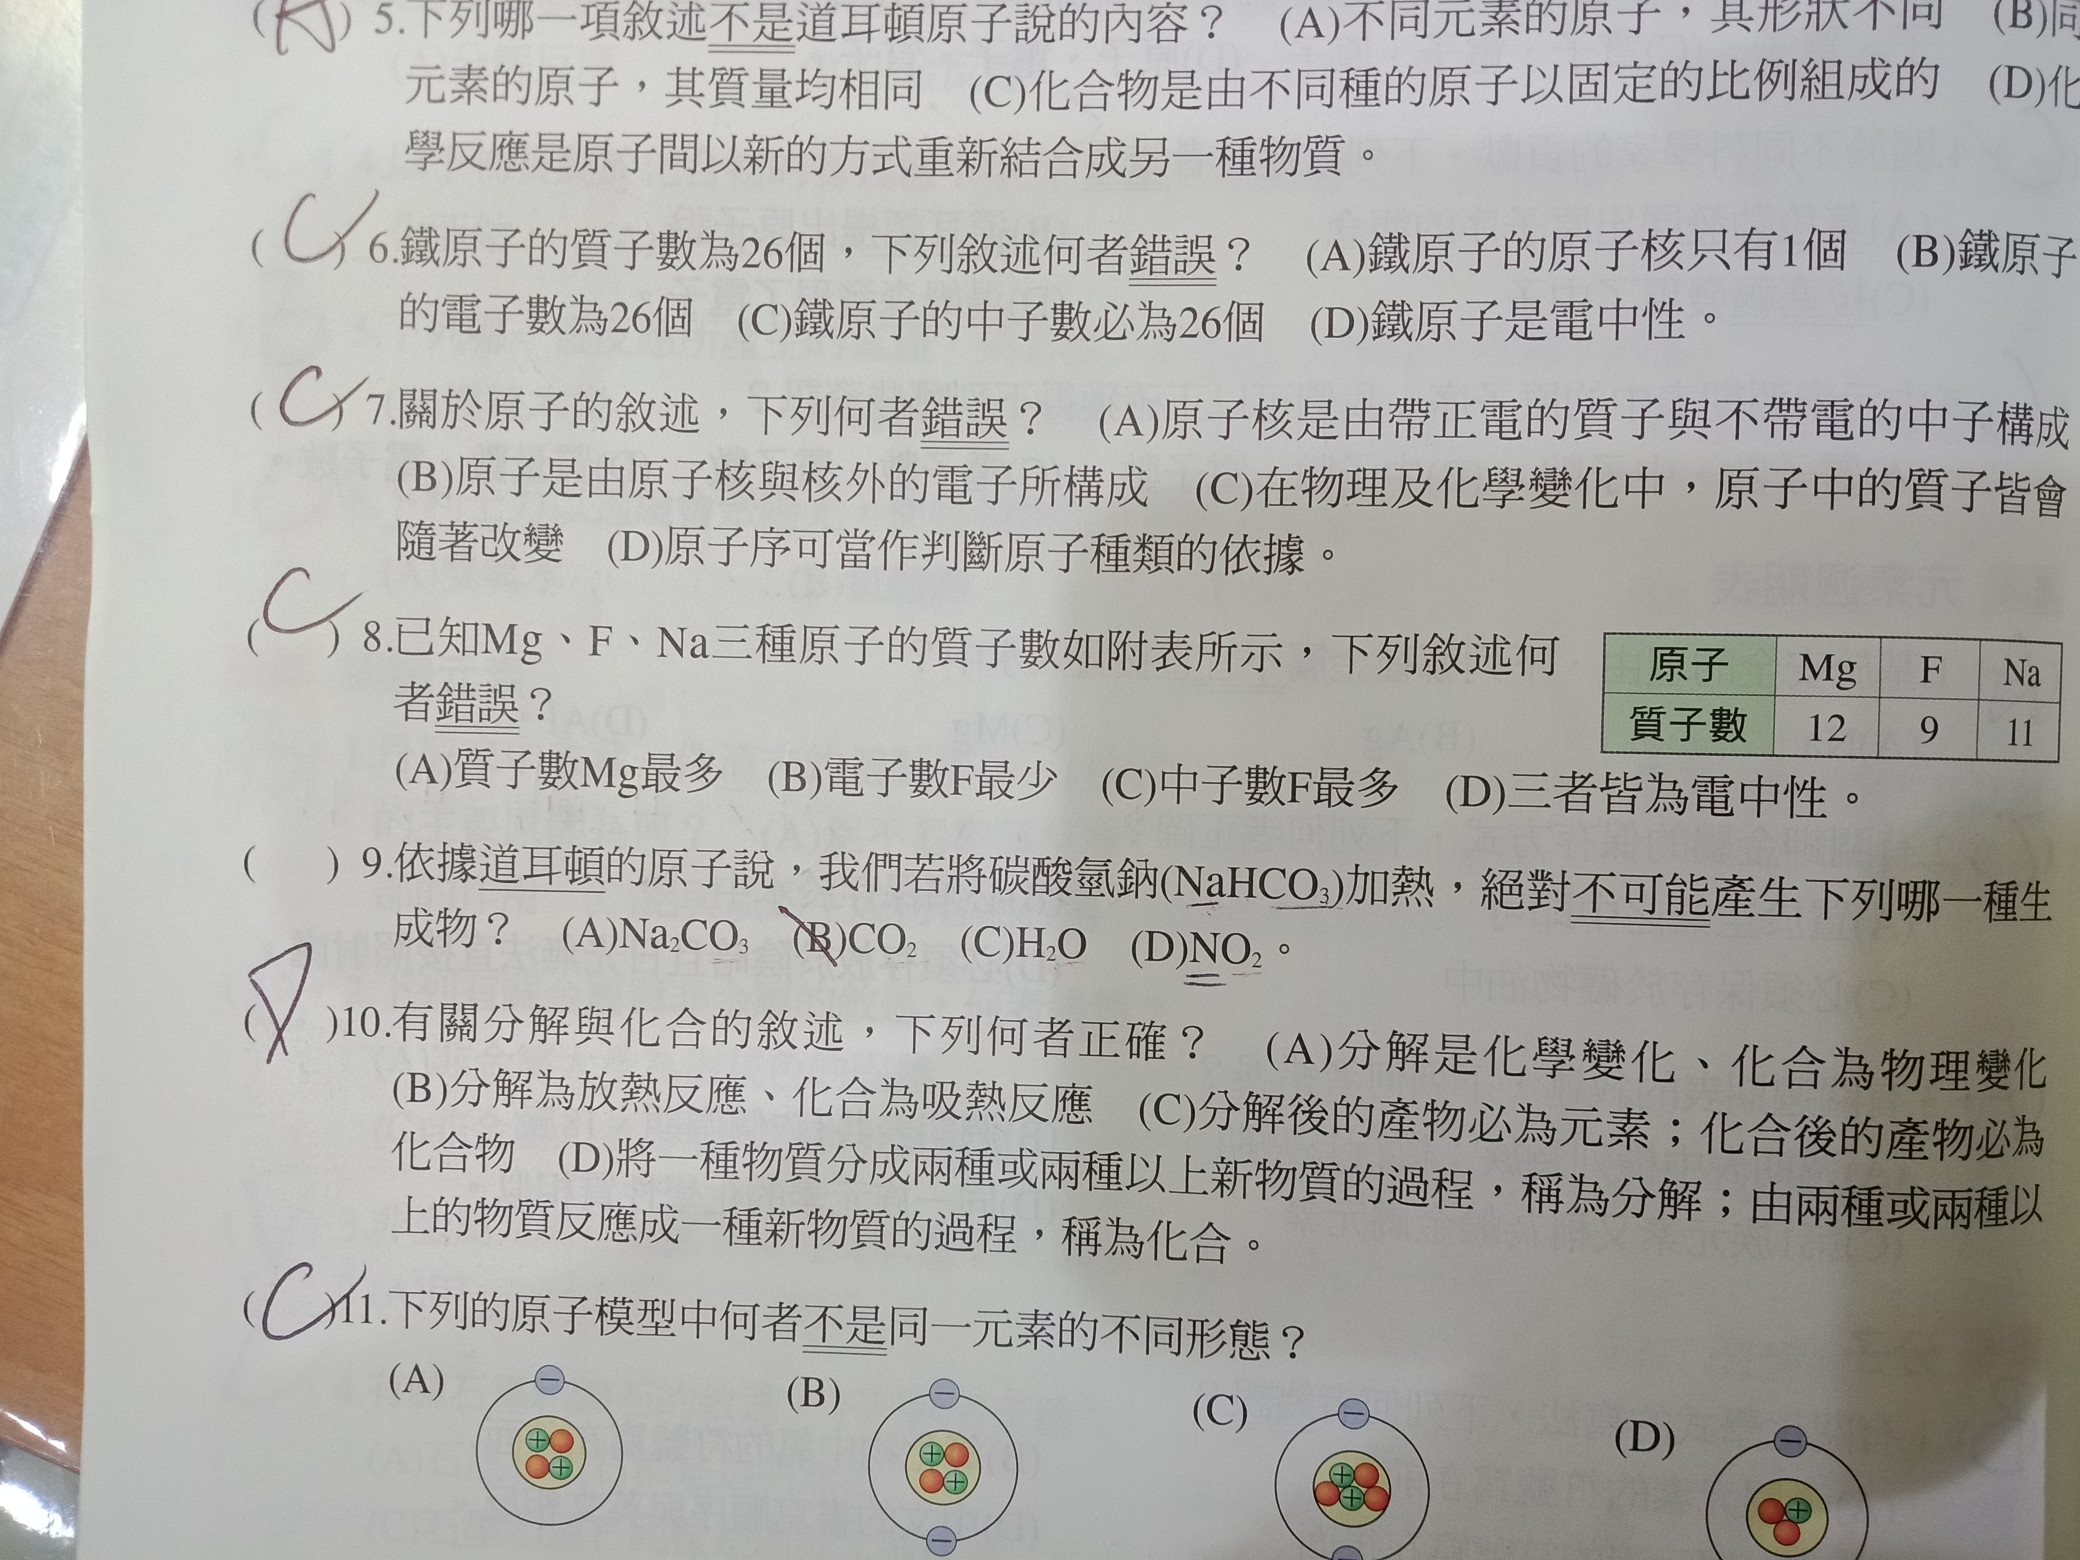 (A) 5.下列哪一項敘述不是道耳頓原子說的內容？ (A)不同元素的原子，其形狀不同 (B)同
元素的原子，其質量均相同 (C)化合物是由不同種的原子以固定的比例組成的 (D)化
學反應是原子間以新的方式重新結合成另一種物質。
(C) 6.鐵原子的質子數為26個，下列敘述何者錯誤？ (A)鐵原子的原子核只有1個 (B)鐵原子
的電子數為26個 (C)鐵原子的中子數必為26個 (D)鐵原子是電中性。
(C) 7.關於原子的敘述，下列何者錯誤？ (A)原子核是由帶正電的質子與不帶電的中子構成
(B)原子是由原子核與核外的電子所構成 (C)在物理及化學變化中，原子中的質子皆會
隨著改變 (D)原子序可當作判斷原子種類的依據。
(C) 8.已知Mg、F、Na三種原子的質子數如附表所示，下列敘述何
者錯誤？
原子 Mg F Na
質子數 12 9 11
(A)質子數Mg最多 (B)電子數F最少 (C)中子數F最多 (D)三者皆為電中性。
( ) 9.依據道耳頓的原子說，我們若將碳酸氫鈉(NaHCO₃)加熱，絕對不可能產生下列哪一種生
成物？ (A)Na₂CO₃ (B)CO₂ (C)H₂O (D)NO₂。
( )10.有關分解與化合的敘述，下列何者正確？ (A)分解是化學變化、化合為物理變化
(B)分解為放熱反應、化合為吸熱反應 (C)分解後的產物必為元素；化合後的產物必為
化合物 (D)將一種物質分成兩種或兩種以上新物質的過程，稱為分解；由兩種或兩種以
上的物質反應成一種新物質的過程，稱為化合。
(C)11.下列的原子模型中何者不是同一元素的不同形態？
(A) (B) (C) (D)